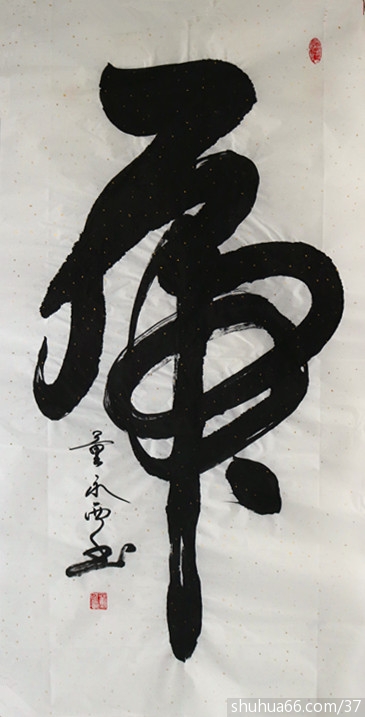 虎
董永西书
shuhua66.com/37